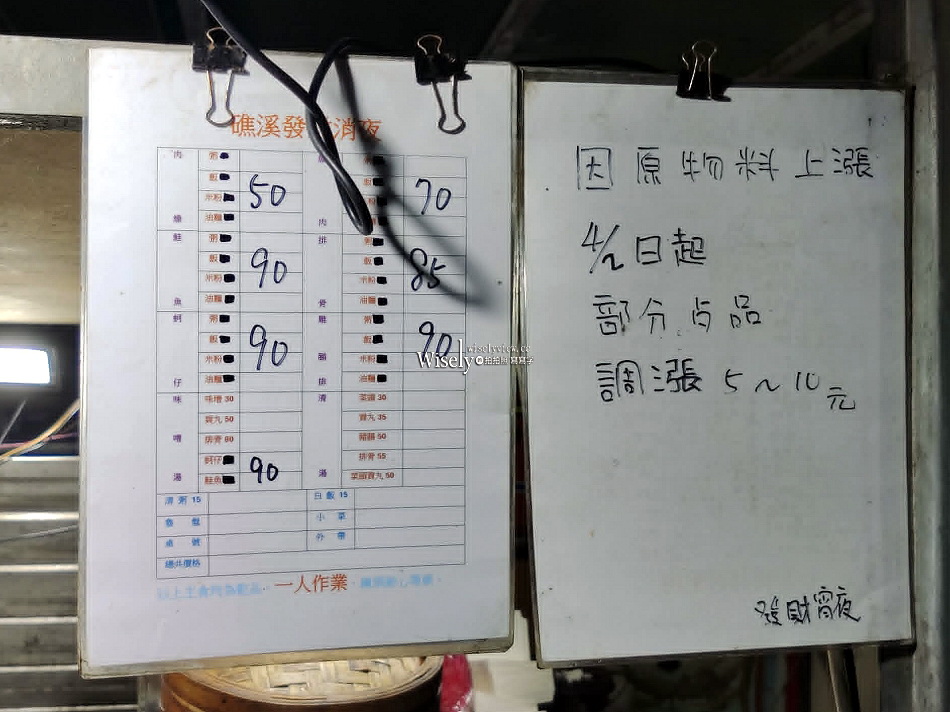 礁溪發 消夜
肉燥 粥 飯 米粉 油麵 50
肉 飯 粉 70
鮭魚 粥 飯 米粉 油麵 90
排骨 粥 飯 米粉 油麵 85
蚵仔 粥 飯 米粉 油麵 90
雞腿排 粥 飯 米粉 油麵 90
味噌湯
味增 30
貢丸 50
排骨 80
蚵仔
鮭魚
90
清湯
菜頭 30
貢丸 35
餛飩 50
排骨 55
菜頭貢丸 50
清粥 15
白飯 15
魯蛋
小菜
桌號
外帶
總共價格
以上主食均為乾品,一人作業,
因原物料上漲
4/2日起
部分占品
調漲 5~10元
發財宵夜
Wisely
wiselyview.cc
拍拍照 寫寫字